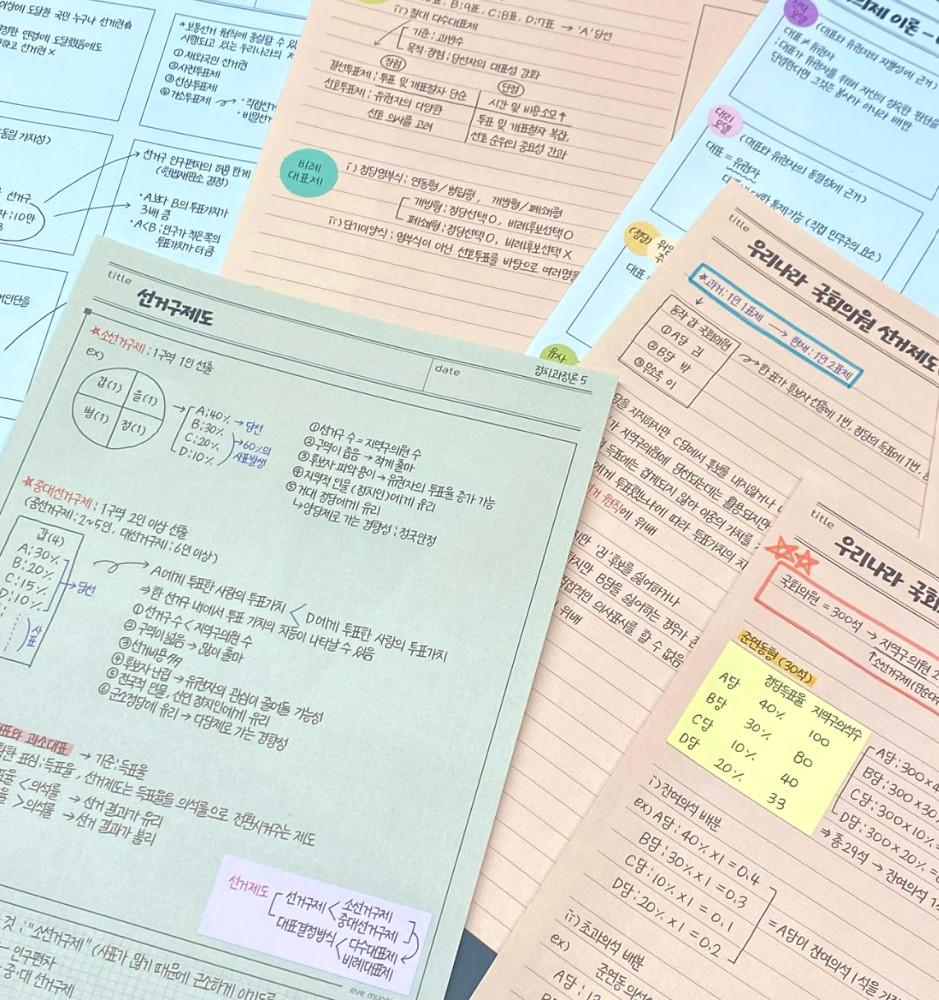 이상에 도달한 국민 누구나 선거권
연령에 도달했음에도
선거권 X
시행되고 있는 우리나라의
① 재외국민 선거권
② 사전투표제
③ 선상투표제
④ 거소투표제
선거구 인구편차의 허용 한계
(헌법재판소 결정)
선거구
10만
· A보다 B의 투표가치가
3배 큼
· A<B ; 인구가 적은 쪽의
투표가치가 더 큼
B;9표, C;8표, D;7표 → 'A' 당선
ii) 절대 다수대표제
기준 ; 과반수
목적·경향 ; 당선자의 대표성 강화
장점
단점
결선투표제 ; 투표 및 개표절차 단순
시간 및 비용소모↑
선호투표제 ; 유권자의 다양한
선호 의사를 고려
투표 및 개표절차 복잡,
선호 순위의 중요성 간과
비례
대표제
i) 정당명부식 ; 연동형 / 병립형, 개방형 / 폐쇄형
개방형 ; 정당선택 O, 비례후보선택 O
폐쇄형 ; 정당선택 O, 비례후보선택 X
ii) 단기이양식 ; 명부식이 아닌 선호투표를 바탕으로 여러명을
이론
대표 ≠ 유권자
대리
모델
(대표와 유권자의 동일성에 근거)
대표 = 유권자
(직접 민주주의 요소)
대표
title
선거구제도
date
정치과정론 5
★소선거구제 ; 1구역 1인 선출
ex)
갑(1) 을(1)
병(1) 정(1)
A;40% → 당선
B;30%
C;20%
D;10%
60%의
사표발생
① 선거구 수 = 지역구의원 수
② 구역이 좁음 → 적게 출마
③ 후보자 파악 용이 → 유권자의 투표율 증가 가능
④ 지역적 인물 (정치인)에게 유리
⑤ 거대 정당에게 유리
↳ 양당제로 가는 경향성 ; 정국안정
★중대선거구제 ; 1구역 2인 이상 선출
(중선거구제 ; 2~5인, 대선거구제 ; 6인 이상)
갑(4)
A;30%
B;20%
C;15%
D;10%
당선
사표
A에게 투표한 사람의 투표가치 < D에게 투표한 사람의 투표가치
⇒ 한 선거구 내에서 투표 가치의 차등이 나타날 수 있음
① 선거구 수 < 지역구의원 수
② 구역이 넓음 → 많이 출마
③ 선거비용 증가
④ 후보자 난립 → 유권자의 관심이 줄어들 가능성
⑤ 전국적 인물, 신인 정치인에게 유리
⑥ 군소정당에 유리 → 다당제로 가는 경향성
대표와 과소대표 → 기준 ; 득표율
표심 ; 득표율, 선거제도는 득표율을 의석률로 전환시켜주는 제도
< 의석률 → 선거 결과가 유리
> 의석률 → 선거 결과가 불리
선거제도
선거구제 < 소선거구제
중대선거구제
대표결정방식 < 다수대표제
비례대표제
것 ; "소선거구제" (사표가 많기 때문에
인구편차
중·대 선거구제
title
우리나라 국회의원 선거제도
★과거 ; 1인 1표제 → 현재 ; 1인 2표제
동작 갑 국회의원
① A당 김
② B당 박
③ 무소속 이
한 표가 후보자 선출에 1번, 정당의 득표에 1번,
당을 지지하지만 C당에서 후보를 내지않거나
지역구의원에 당선되는데는 활용되지만
원칙에 위배
후보를 싫어하거나
B당을 싫어하는 경우가
의사표시를 할 수 없음
위배
title
우리나라 국회
국회의원 = 300석 → 지역구의원 2
준연동형 (30석)
정당득표율 지역구의석수
A당 40% 100
B당 30% 80
C당 10% 40
D당 20% 33
A당 ; 300×4
B당 ; 300×30
C당 ; 300×10%
D당 ; 300×20% =
⇒ 총 29석 → 잔여의석 1
i) 잔여의석 배분
ex) A당 ; 40% × 1 = 0.4
B당 ; 30% × 1 = 0.3
C당 ; 10% × 1 = 0.1
D당 ; 20% × 1 = 0.2
= A당이 잔여의석 1석을
ii) 초과의석 배분
ex)
준연동의석수
A당